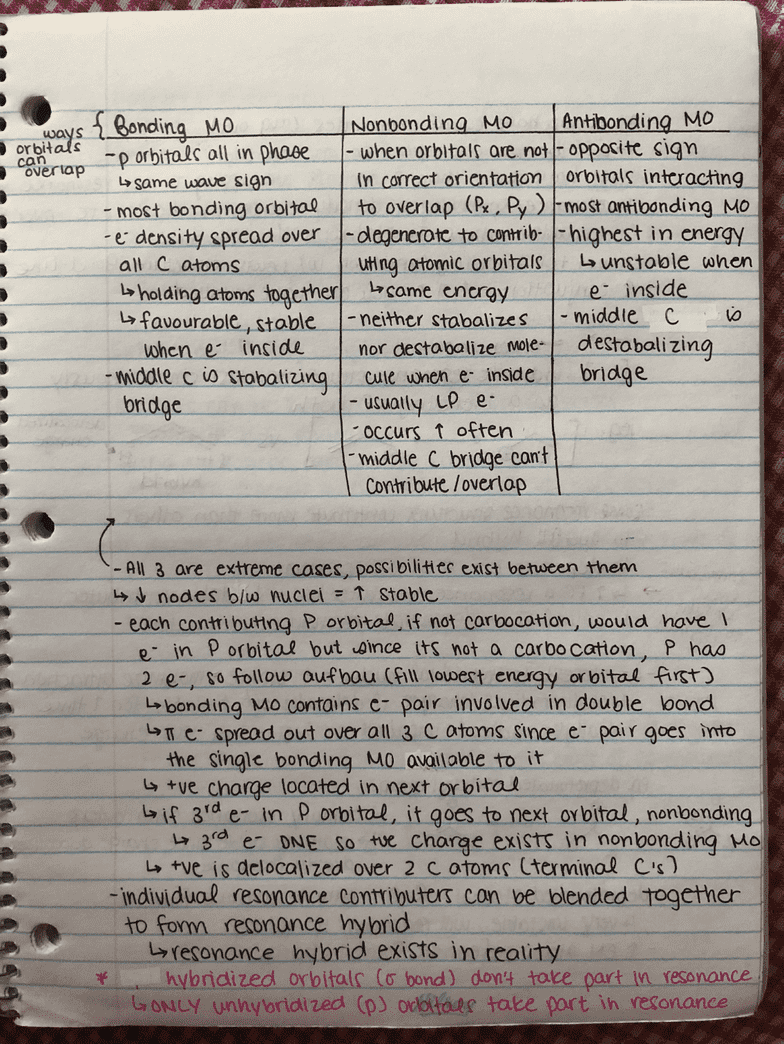 ways orbitals can overlap {
Bonding MO
-p orbitals all in phase
↳same wave sign
-most bonding orbital
-e⁻ density spread over
all C atoms
↳holding atoms together
↳favourable, stable
when e⁻ inside
-middle C is stabalizing
bridge
Nonbonding MO
- when orbitals are not
in correct orientation
to overlap (Px, Py)
-degenerate to contrib-
uting atomic orbitals
↳same energy
-neither stabalizes
nor destabalize mole-
cule when e⁻ inside
- usually LP e⁻
-occurs ↑ often
-middle C bridge can't
contribute/overlap
Antibonding MO
-opposite sign
orbitals interacting
-most antibonding MO
-highest in energy
↳unstable when
e⁻ inside
-middle C is
destabalizing
bridge
-All 3 are extreme cases, possibilities exist between them
↳ ↓ nodes b/w nuclei = ↑ stable
- each contributing P orbital, if not carbocation, would have 1
e⁻ in P orbital but since its not a carbocation, P has
2 e⁻, so follow aufbau (fill lowest energy orbital first)
↳bonding MO contains e⁻ pair involved in double bond
↳π e⁻ spread out over all 3 C atoms since e⁻ pair goes into
the single bonding MO available to it
↳ +ve charge located in next orbital
↳if 3rd e⁻ in P orbital, it goes to next orbital, nonbonding
↳ 3rd e⁻ DNE so +ve charge exists in nonbonding MO
↳ +ve is delocalized over 2 C atoms (terminal C's)
-individual resonance contributers can be blended together
to form resonance hybrid
↳resonance hybrid exists in reality
* hybridized orbitals (σ bond) don't take part in resonance
↳ONLY unhybridized (p) orbitals take part in resonance